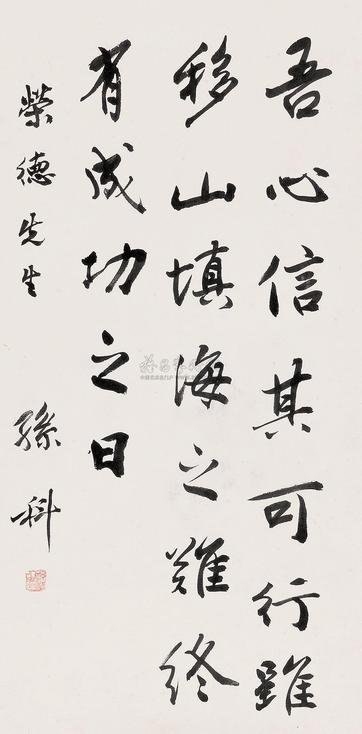 吾心信其可行雖
移山填海之難終
有成功之日
榮德先生 孫科